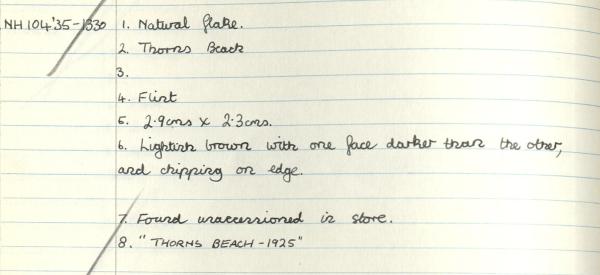 NH104'35-1330 1. Natural flake.
2. Thorns Beach
3.
4. Flint
5. 2.9cms x 2.3cms.
6. Lightish brown with one face darker than the other,
and chipping on edge.
7. Found unaccessioned in store.
8. "THORNS BEACH - 1925"